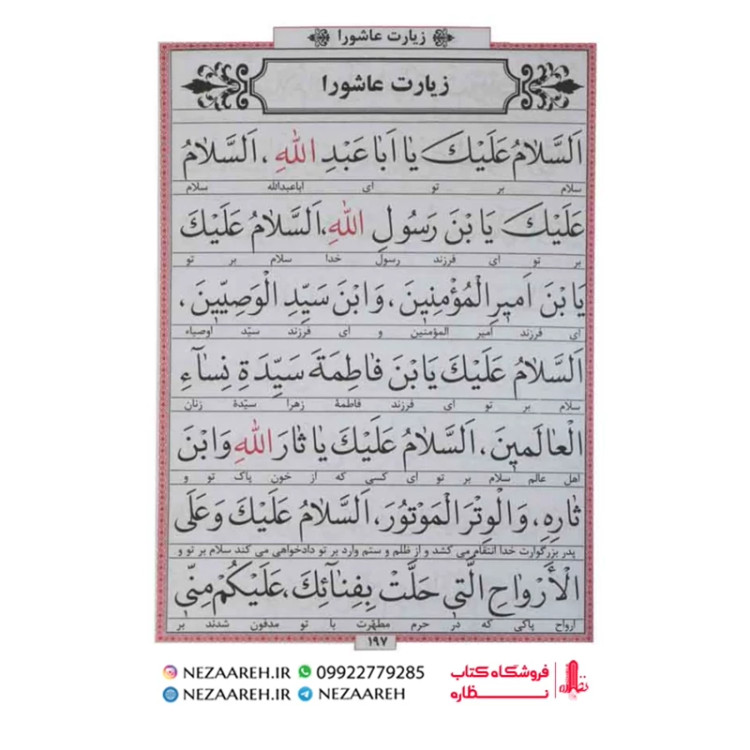 زیارت عاشورا
زیارت عاشورا
اَلسَّلامُ عَلَیْكَ یا اَبا عَبْدِ اللهِ ، اَلسَّلامُ
سلام بر تو ای اباعبدالله سلام
عَلَیْكَ یَا بْنَ رَسُولِ اللهِ، اَلسَّلامُ عَلَیْكَ
بر تو ای فرزند رسول خدا سلام بر تو
یَا بْنَ اَمیرِ الْمُؤْمِنینَ ، وَ ابْنَ سَیِّدِ الْوَصِیّینَ ،
ای فرزند امیر المؤمنین و ای فرزند سیّد اوصیاء
اَلسَّلامُ عَلَیْكَ یَا بْنَ فاطِمَةَ سَیِّدَةِ نِسآءِ
سلام بر تو ای فرزند فاطمهٔ زهرا سیّدهٔ زنان
الْعالَمینَ ، اَلسَّلامُ عَلَیْكَ یا ثارَ اللهِ وَ ابْنَ
اهل عالم سلام بر تو ای کسی که از خون پاک تو و
ثارِهِ، وَ الْوِتْرَ الْمَوْتُورَ، اَلسَّلامُ عَلَیْكَ وَ عَلَی
پدر بزرگوارت خدا انتقام می کشد و از ظلم و ستم وارد بر تو دادخواهی می کند سلام بر تو و
الْأَرْواحِ الَّتی حَلَّتْ بِفِنآئِكَ، عَلَیْكُمْ مِنّی
ارواح پاکی که در حرم مطهّرت با تو مدفون شدند بر
۱۹۷
NEZAAREH.IR 09922779285 فروشگاه کتاب
NEZAAREH.IR NEZAAREH نظاره